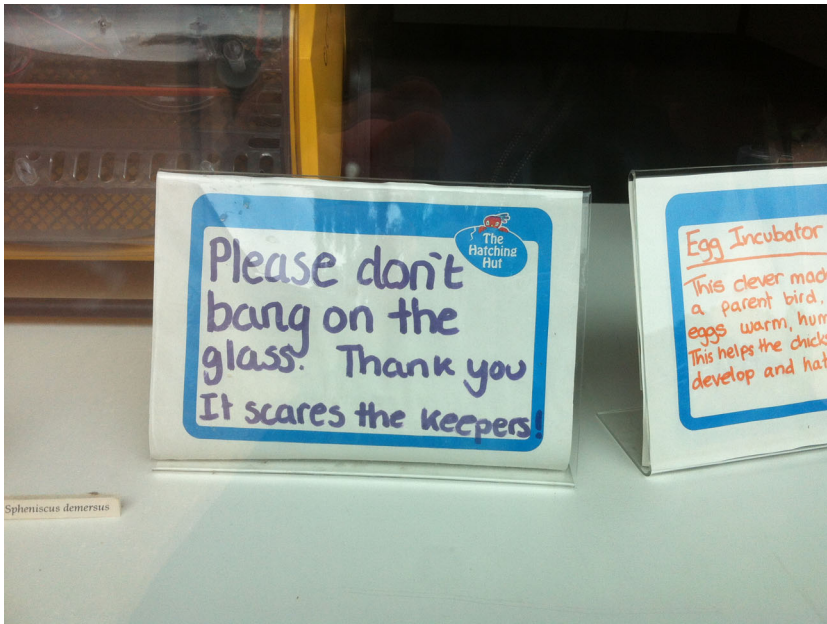 The
Hatching
Hut
Please don't
bang on the
glass. Thank you
It scares the keepers!
Egg Incubator
This clever
a parent bird,
eggs warm,
This helps the
develop and
Spheniscus demersus